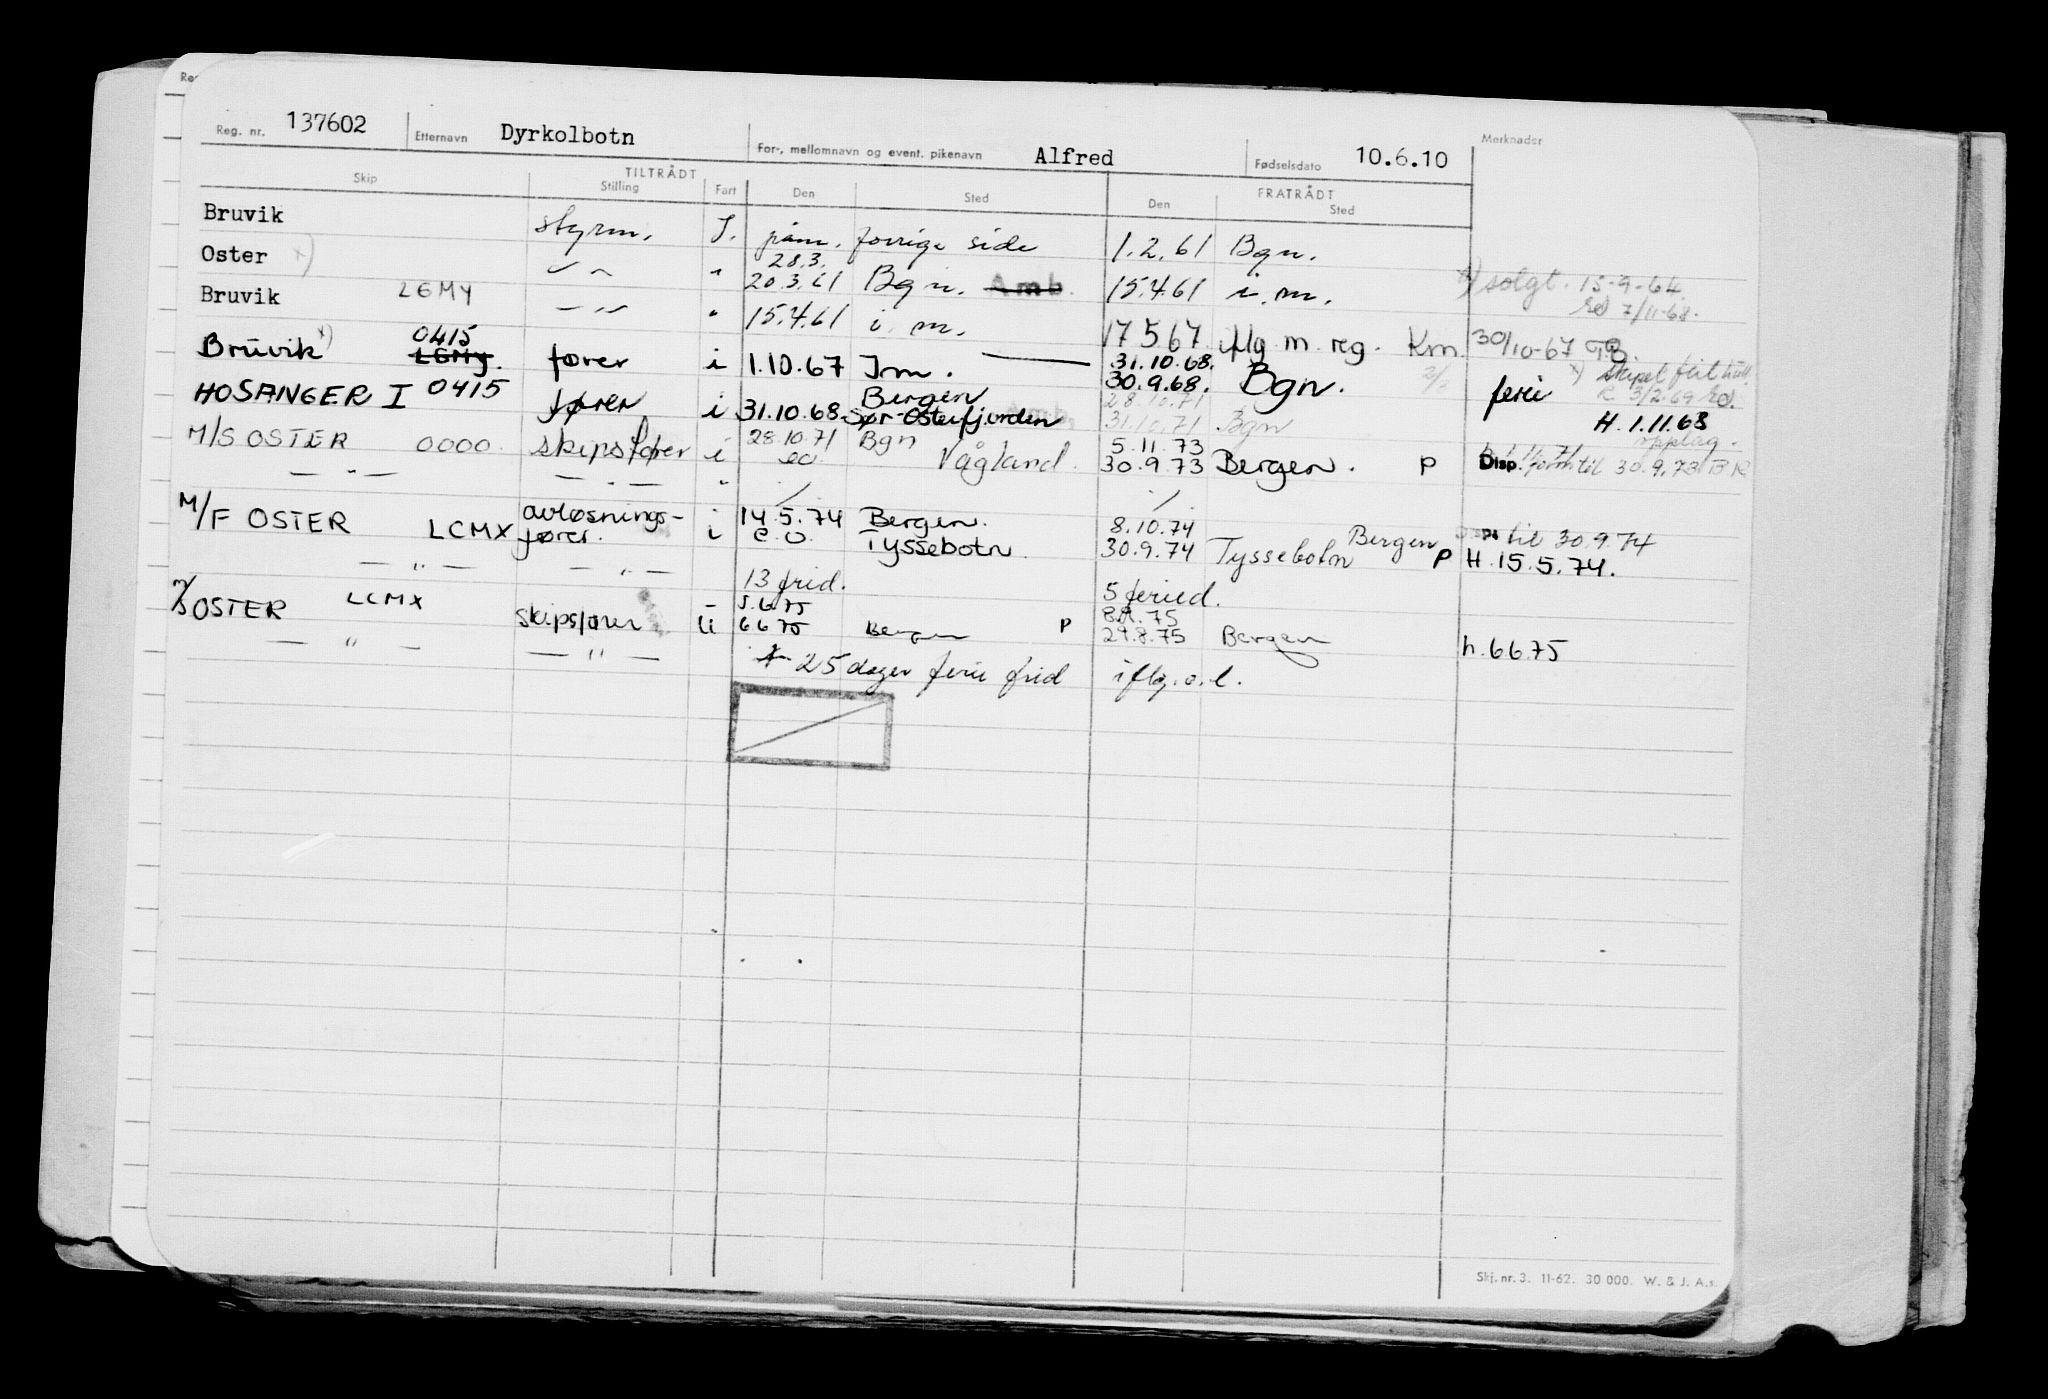 Reg. nr. 137602 Etternavn Dyrkolbotn For-, mellomnavn og event. pikenavn Alfred Fødselsdato 10.6.10 Merknader
TILTRÅDT FRATRÅDT
Skip Stilling Fart Den Sted Den Sted
Bruvik styrm. I. påm. forrige side 1.2.61 Bgn.
28.3.
Oster x) 20.3.61 Bgn. Amb. 15.4.61 i.m. x) solgt. 15-9-64
7/11-68.
Bruvik LEMY 15.4.61 i.m. 17 5 67 iflg. m. reg. Km. 30/10-67
0415 31.10.68.
Bruvik x) LEMY. fører i 1.10.67 Im. 30.9.68. Bgn. ferie x) skipet
3/2.69
Bergen 28.10.71
HOSANGER I 0415 fører i 31.10.68 Sør-Osterfjorden 31.10.71 Bgn H. 1.11.68
opplag.
28.10.71 Bgn 5.11.73
M/S OSTER 0000. skipsfører i eo. Vågland. 30.9.73 Bergen. P Disp. til 30.9.73
— " — — " — "
avløsnings- 14.5.74 Bergen. 8.10.74 Bergen til 30.9.74
M/F OSTER LCMX fører. i e.o. Tyssebotn. 30.9.74 Tyssebotn P H. 15.5.74.
— " — — " — 13 frid. 5 feried.
5.6.75 75
M/S OSTER LCMX skipsfører ü 6 6 75 Bergen P 29.8.75 Bergen h. 6 6 75
— " — — " — 25 dager ferie frid iflg. o.l.
Skj. nr. 3. 11-62. 30 000. W. & J. A.s.